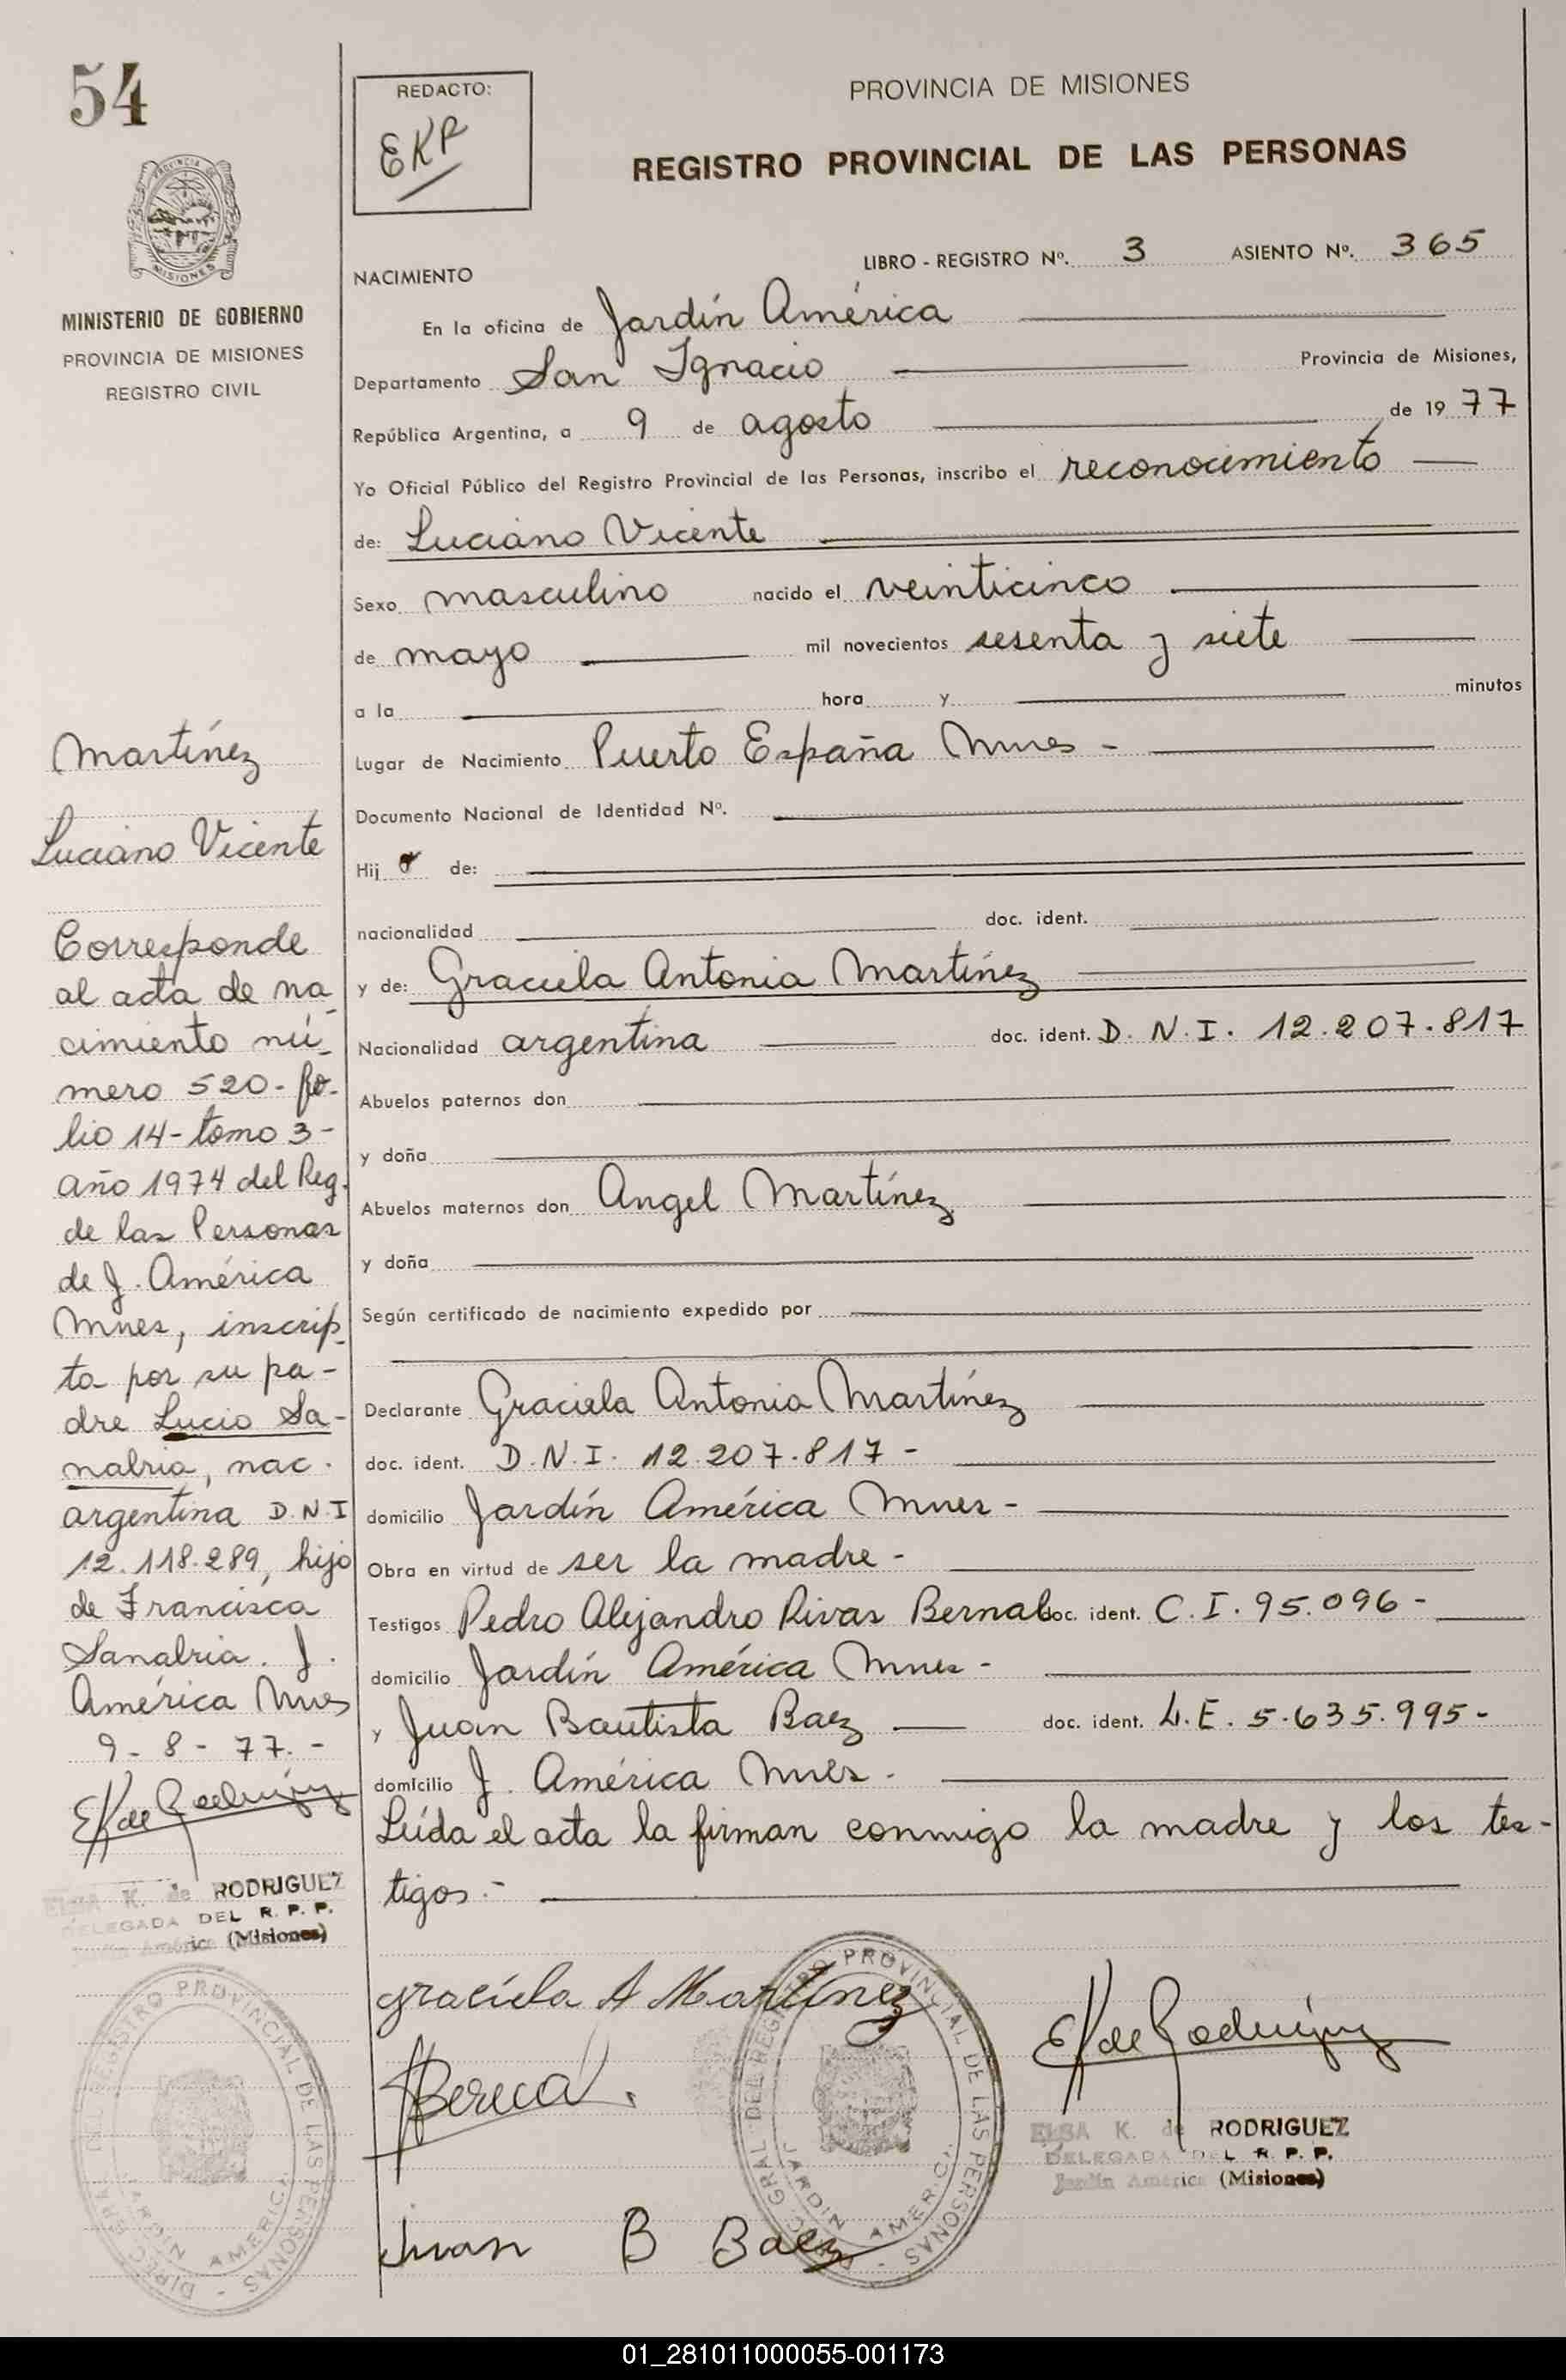 54
PROVINCIA
MISIONES
MINISTERIO DE GOBIERNO
PROVINCIA DE MISIONES
REGISTRO CIVIL
REDACTO:
EKR
PROVINCIA DE MISIONES
REGISTRO PROVINCIAL DE LAS PERSONAS
LIBRO - REGISTRO Nº. 3 ASIENTO Nº. 365
NACIMIENTO
En la oficina de Jardín América
Departamento San Ignacio Provincia de Misiones,
República Argentina, a 9 de agosto de 1977
Yo Oficial Público del Registro Provincial de las Personas, inscribo el reconocimiento
de: Luciano Vicente
Sexo masculino nacido el veinticinco
de mayo mil novecientos sesenta y siete
a la hora y minutos
Lugar de Nacimiento Puerto España Mnes -
Documento Nacional de Identidad Nº.
Hijo de:
nacionalidad doc. ident.
y de: Graciela Antonia Martínez
Nacionalidad argentina doc. ident. D.N.I. 12.207.817
Abuelos paternos don
y doña
Abuelos maternos don Angel Martínez
y doña
Según certificado de nacimiento expedido por
Declarante Graciela Antonia Martínez
doc. ident. D.N.I. 12.207.817 -
domicilio Jardín América Mnes -
Obra en virtud de ser la madre -
Testigos Pedro Alejandro Rivas Bernal doc. ident. C.I. 95.096 -
domicilio Jardín América Mnes -
y Juan Bautista Baez doc. ident. L.E. 5.635.995 -
domicilio J. América Mnes -
Leída el acta la firman conmigo la madre y los tes-
tigos.-
Martínez
Luciano Vicente
Corresponde
al acta de na-
cimiento nú-
mero 520 - fo-
lio 14 - tomo 3 -
año 1974 del Reg.
de las Personas
de J. América
Mnes, inscrip-
ta por su pa-
dre Lucio Sa-
nabria, nac.
argentina D.N.I
12.118.289, hijo
de Francisca
Sanabria. J.
América Mnes
9 - 8 - 77. -
EK de Rodriguez
ELSA K. de RODRIGUEZ
DELEGADA DEL R. P. P.
Jardín América (Misiones)
DIREC. GRAL. DEL REGISTRO PROVINCIAL DE LAS PERSONAS -
JARDIN AMERICA
graciela A Martínez
DIREC. GRAL. DEL REGISTRO PROVINCIAL DE LAS PERSONAS -
JARDIN AMERICA
EK de Rodriguez
ELSA K. de RODRIGUEZ
DELEGADA DEL R. P. P.
Jardín América (Misiones)
Juan B Baez
01_281011000055-001173